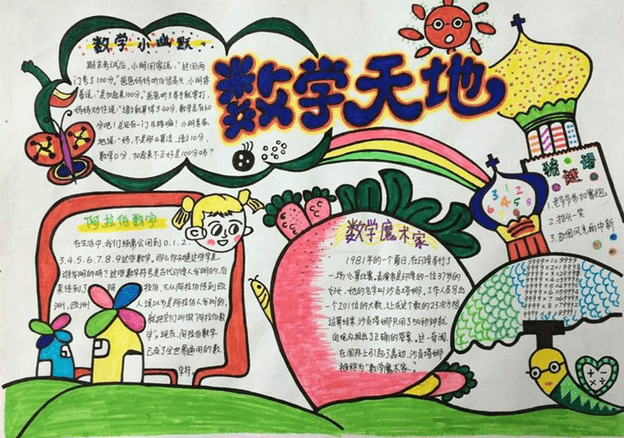 数学天地
数学小幽默
期末考试后,小明回家说:"这回两
门考了100分。"爸爸妈妈听后很高兴,小明接
着说:"是加起来100分。"爸爸听了举手就要打,
妈妈劝住说:"语文就算得了40分,数学还有60
分吧!总还有一门及格嘛!"小明委屈
地说:"妈,不是那么算法,语文10分,
数学0分,加起来不正好是100分吗?
阿拉伯数字
在生活中,我们经常会用到0.1.2.
3.4.5.6.7.8.9这些数字。那么你知道这些字是
谁发明的吗?这些数字符号是古代印度人发明的,后
来传到了阿拉伯,又从阿拉伯传到欧
洲,欧洲人误以为是阿拉伯人发明的,
就把它们叫做"阿拉伯数
字"。现在,阿拉伯数字
已成了全世界通用的数
字符
数学魔术家
1981年的一个夏日,在印度举行了
一场心算比赛,表演者是印度的一位37岁的
妇女,他的名字叫沙贡塔娜,工作人员写出
一个201位的大数,让求这个数的23次方根
运算结果,沙贡塔娜只用了50秒钟就
向观众报出了正确的答案。这一奇闻,
在国际上引起了轰动,沙贡塔娜
被称为"数学魔术家"。
猜谜语
1.老爷爷参加赛跑
2.抬头一笑
3.劲圆风光雨中新
3 1 2
4 5 8
9999×1=9999
+ - × ÷